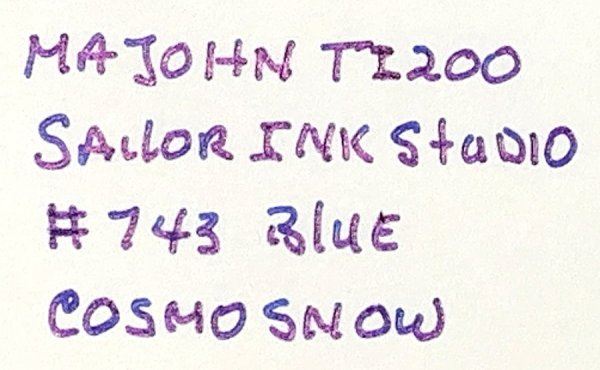 MAJOHN TI200
SAILOR INK StuDIO
# 743 BluE
COSMO SNOW